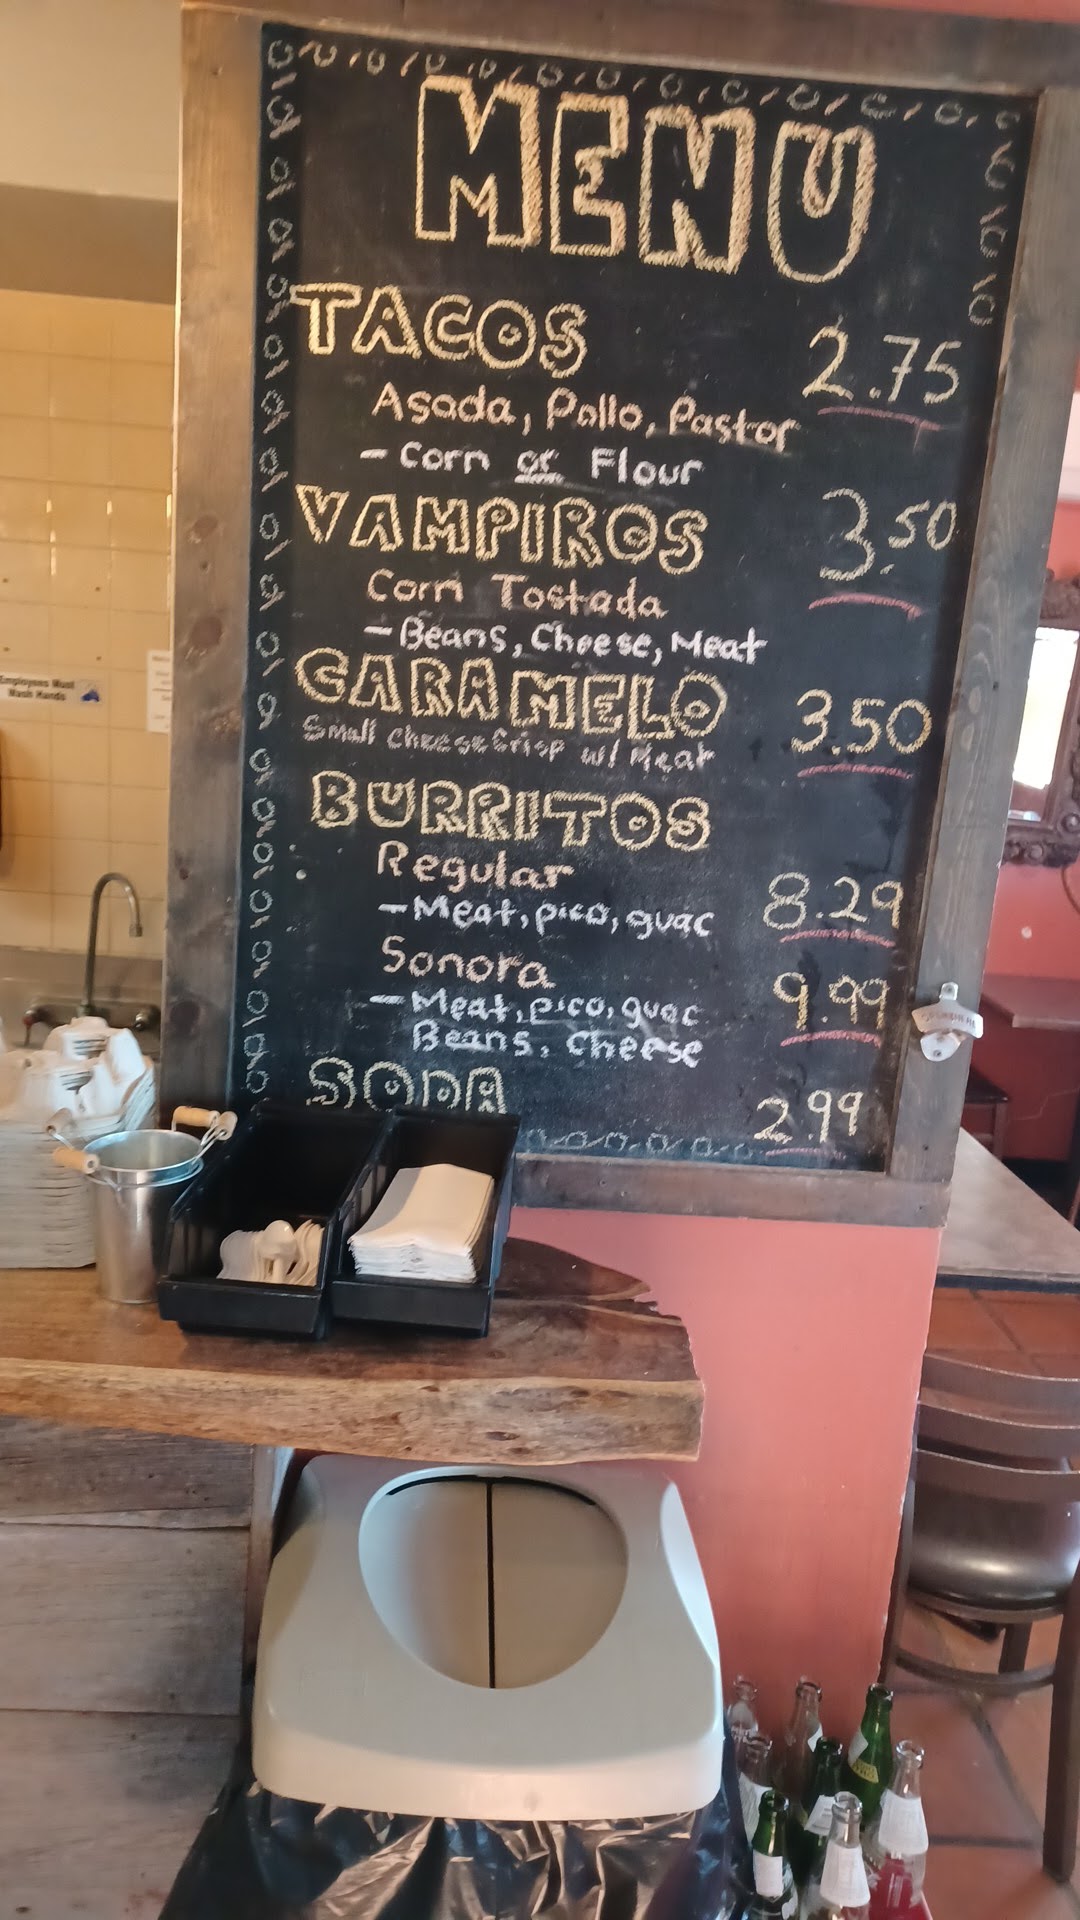 MENU
TACOS 2.75
Asada, Pollo, Pastor
- Corn or Flour
VAMPIROS 3.50
Corn Tostada
- Beans, Cheese, Meat
CARAMELO 3.50
Small Cheese Crisp w/ Meat
BURRITOS
Regular
- Meat, pico, guac 8.29
Sonora
- Meat, pico, guac 9.99
Beans, Cheese
SODA 2.99
Employees Must
Wash Hands